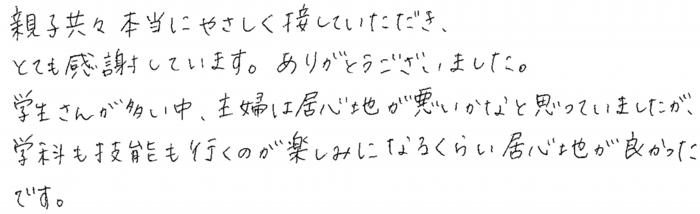 親子共々本当にやさしく接していただき、
とても感謝しています。ありがとうございました。
学生さんが多い中、主婦は居心地が悪いかなと思っていましたが、
学科も技能も行くのが楽しみになるくらい居心地が良かった
です。